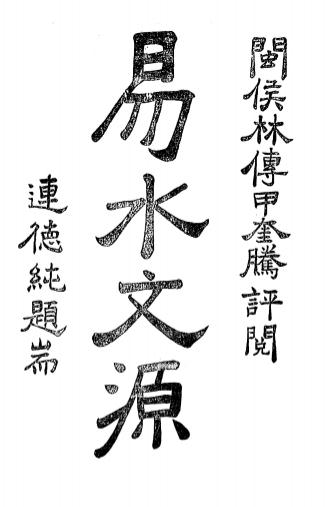 閩侯林傳甲奎騰評閱
易水文源
連德純題耑